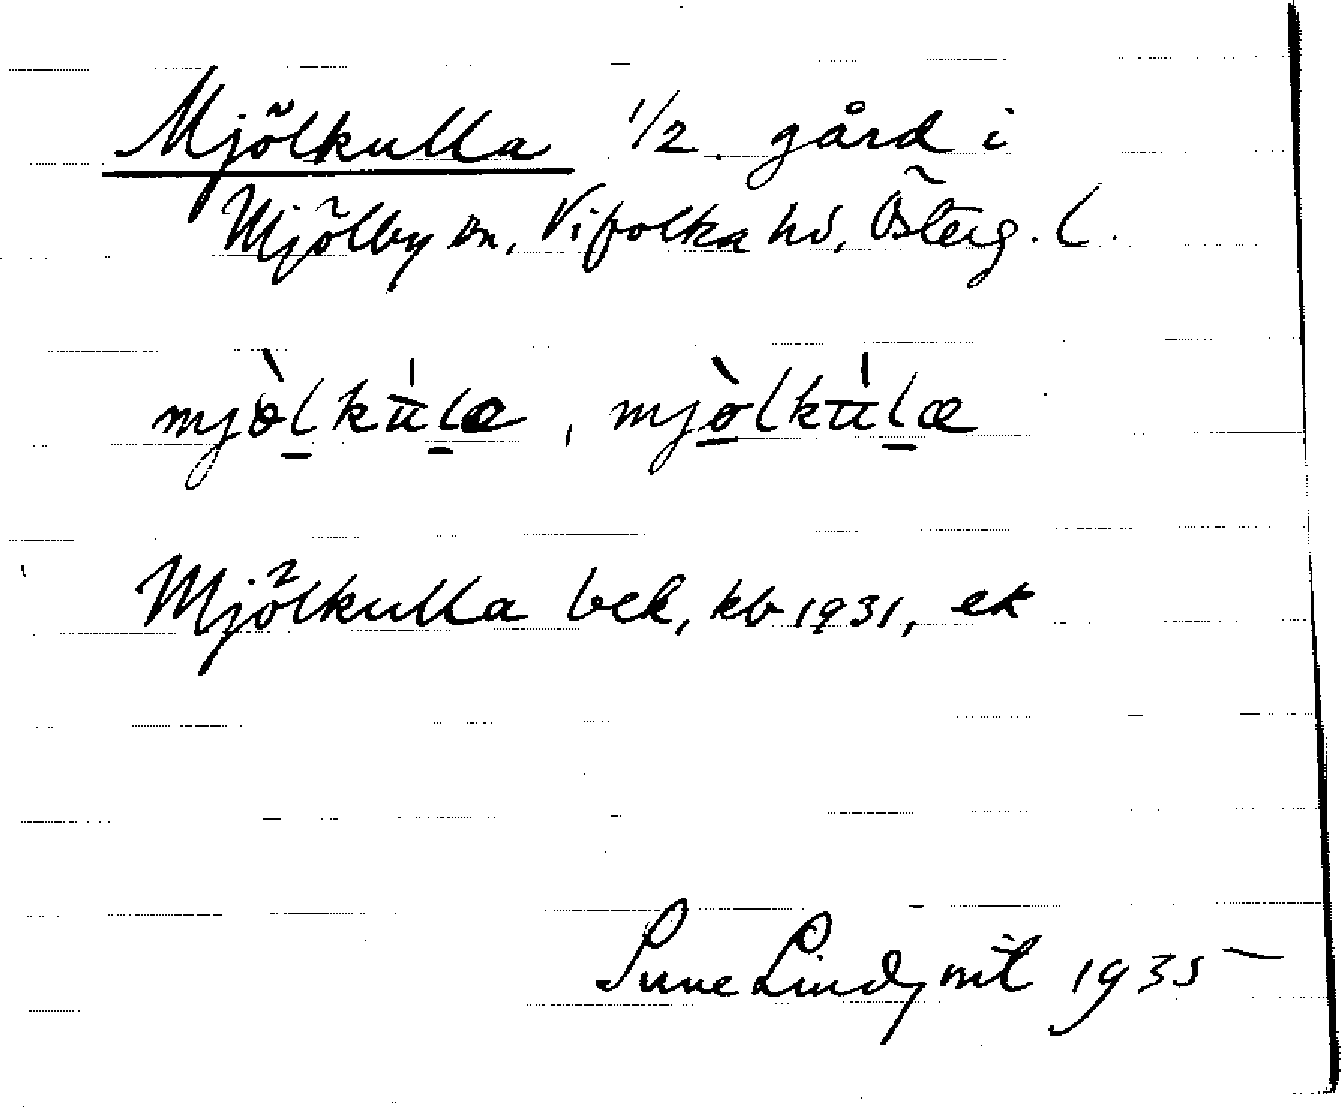 Mjölkulla 1/2 gård i
Mjölby sn, Vifolka hd, Österg. l.
mjòlkúla, mjòlkúlæ
Mjölkulla bek, kb 1931, ek
Sune Lindqvist 1935